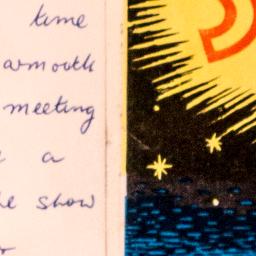 time
armouth
meeting
a
show